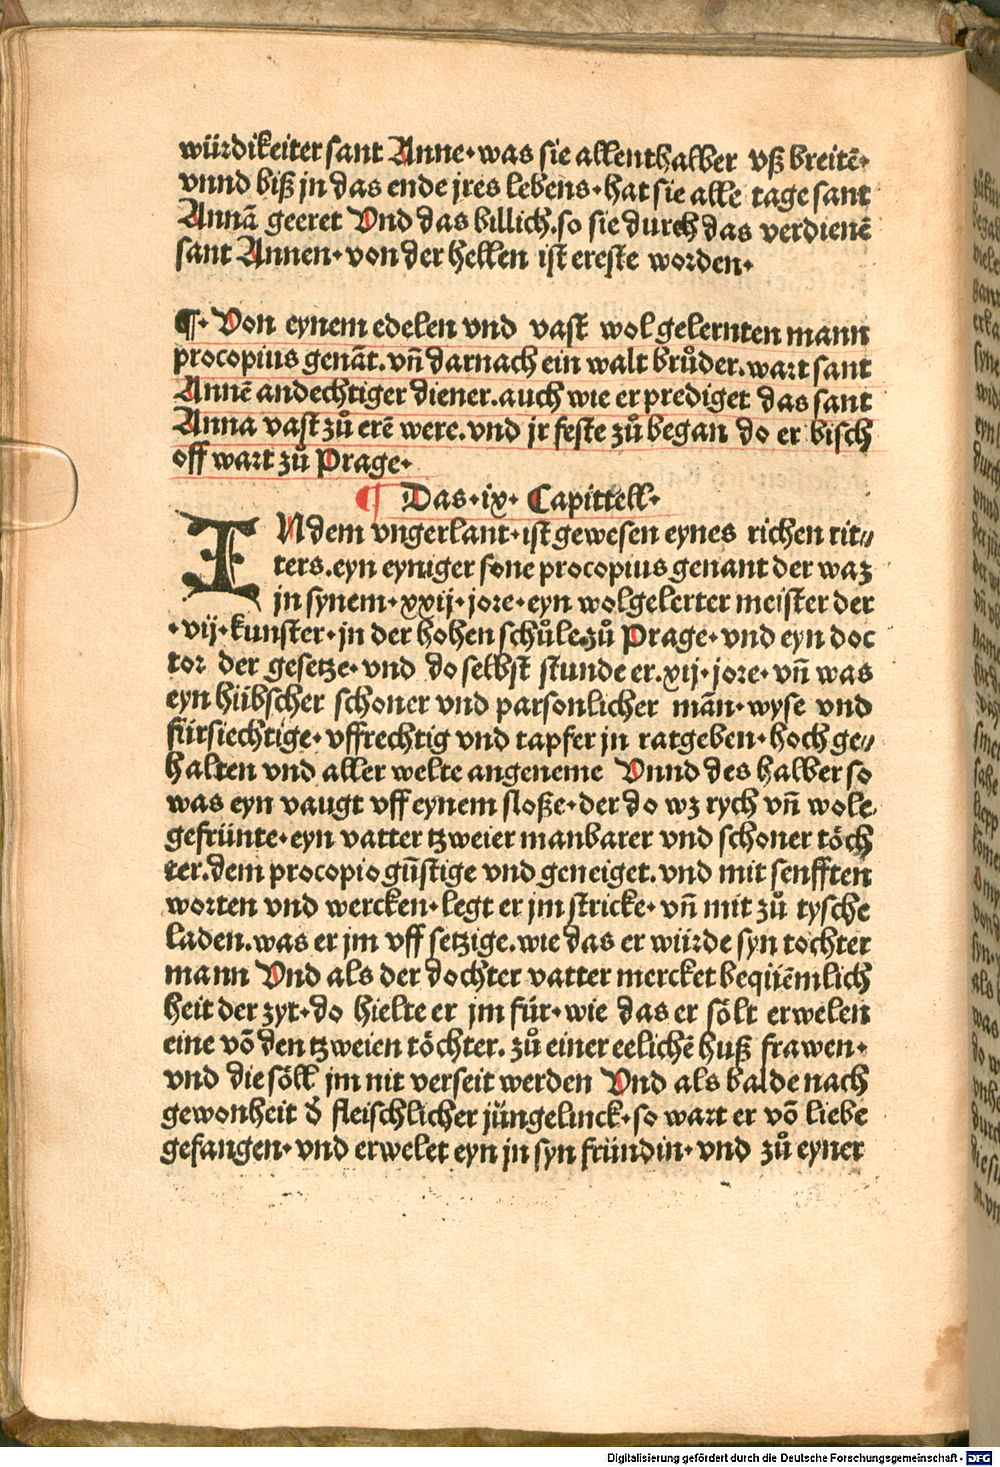 würdikeiter sant Anne·was sie allenthalber vß breitē·
vnnd biß jn das ende jres lebens·hat sie alle tage sant
Annā geeret Vnd das billich.so sie durch das verdienē
sant Annen·von der hellen ist ereste worden·
¶·Von eynem edelen vnd vast wol gelernten mann
procopius genāt.vn̄ darnach ein walt brůder.wart sant
Annē andechtiger diener.auch wie er prediget das sant
Anna vast zů erē were.vnd jr feste zů began do er bisch
off wart zů Prage·
¶ Das·ix·Capittell·
INdem vngerlant·ist gewesen eynes richen rit⸗
ters.eyn eyniger sone procopius genant der waz
jn synem·xxij·jore·eyn wolgelerter meister der
·vij·kunster·jn der hohen schůle zů Prage·vnd eyn doc
tor der gesetze·vnd do selbst stunde er.xij·jore·vn̄ was
eyn hübscher schoner vnd parsonlicher mān·wyse vnd
fürsiechtige·vffrechtig vnd tapfer jn ratgeben·hoch ge⸗
halten vnd aller welte angeneme Vnnd des halber so
was eyn vaugt vff eynem sloße·der do wz rych vn̄ wole
gefrünte·eyn vatter tzweier manbarer vnd schoner töch
ter.dem procopio gūstige vnd geneiget.vnd mit senfften
worten vnd wercken·legt er jm stricke·vn̄ mit zů tysche
laden.was er jm vff setzige.wie das er würde syn tochter
mann Vnd als der dochter vatter mercket beqüēmlich
heit der zyt·do hielte er jm für·wie das er sölt erwelen
eine vō den tzweien töchter.zů einer eelichē huß frawen·
vnd die söll jm nit verseit werden Vnd als balde nach
gewonheit d̄ fleischlicher jüngelinck·so wart er vō liebe
gefangen·vnd erwelet eyn jn syn fründin·vnd zů eyner
Digitalisierung gefördert durch die Deutsche Forschungsgemeinschaft - DFG